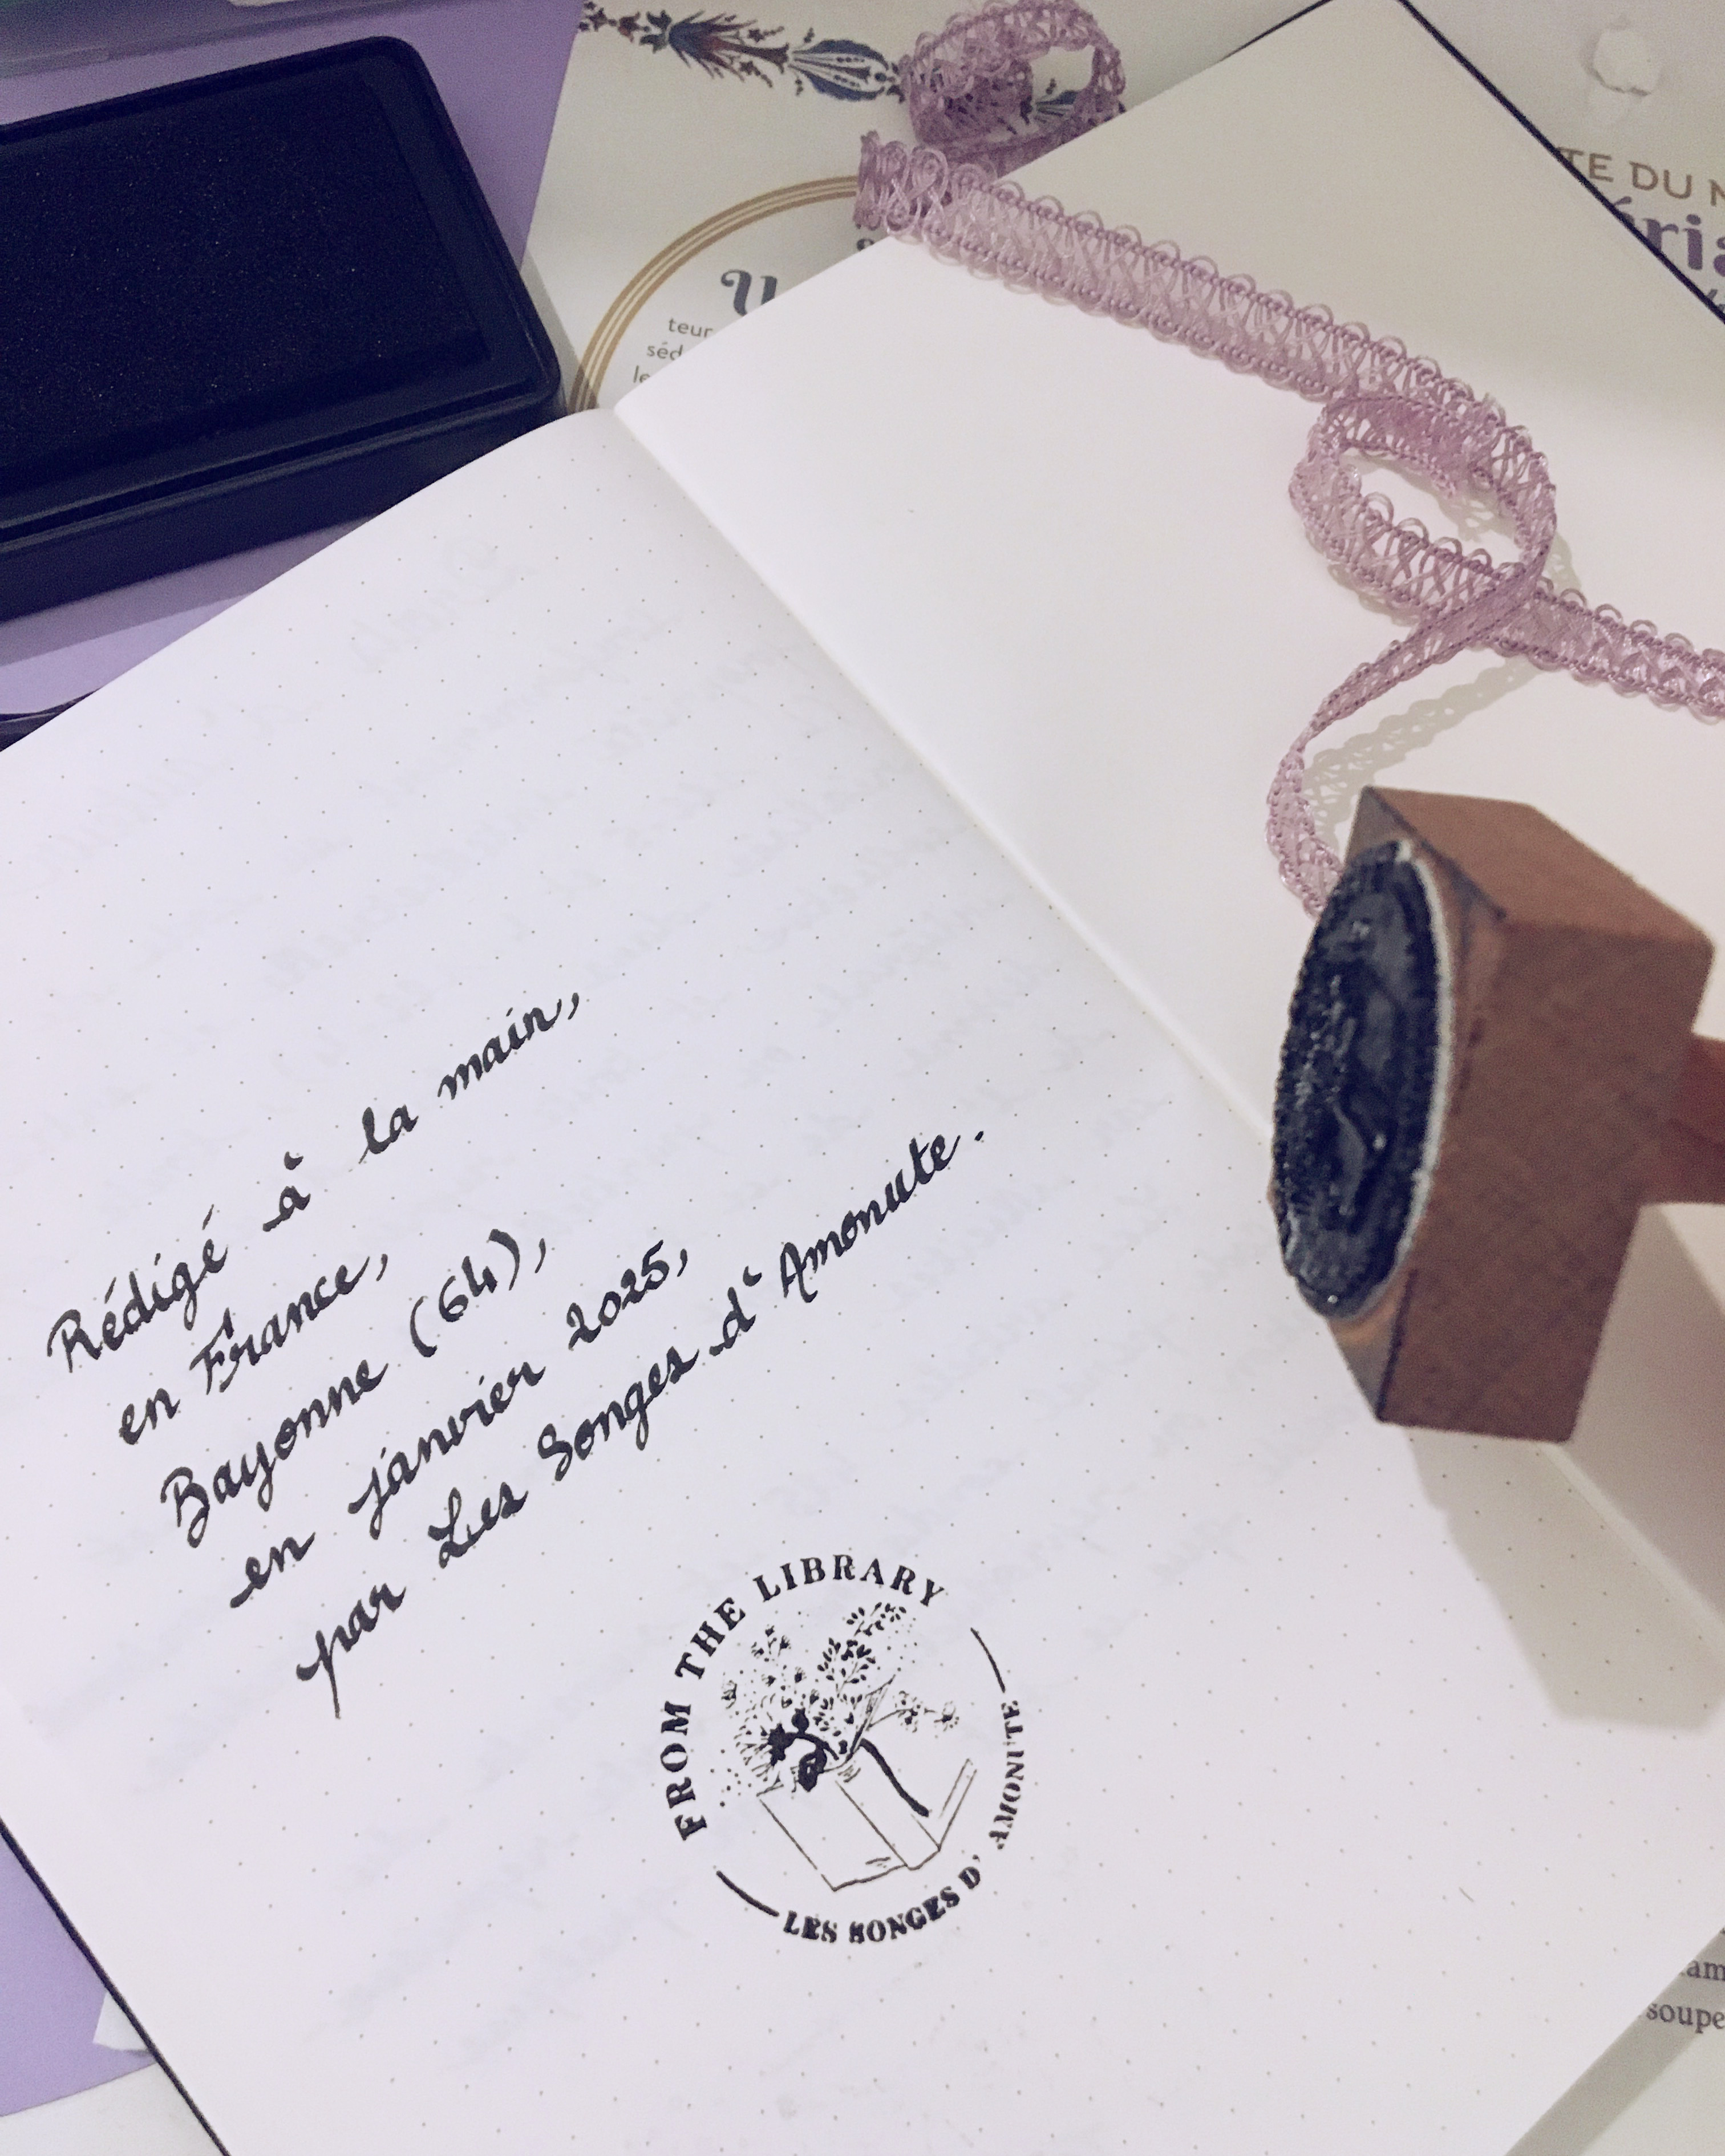 Rédigé à la main,
en France,
Bayonne (64),
en janvier 2025,
par Les Songes d'Amonute.
FROM THE LIBRARY
LES SONGES D' AMONUTE
TE DU
teur
le
soupe